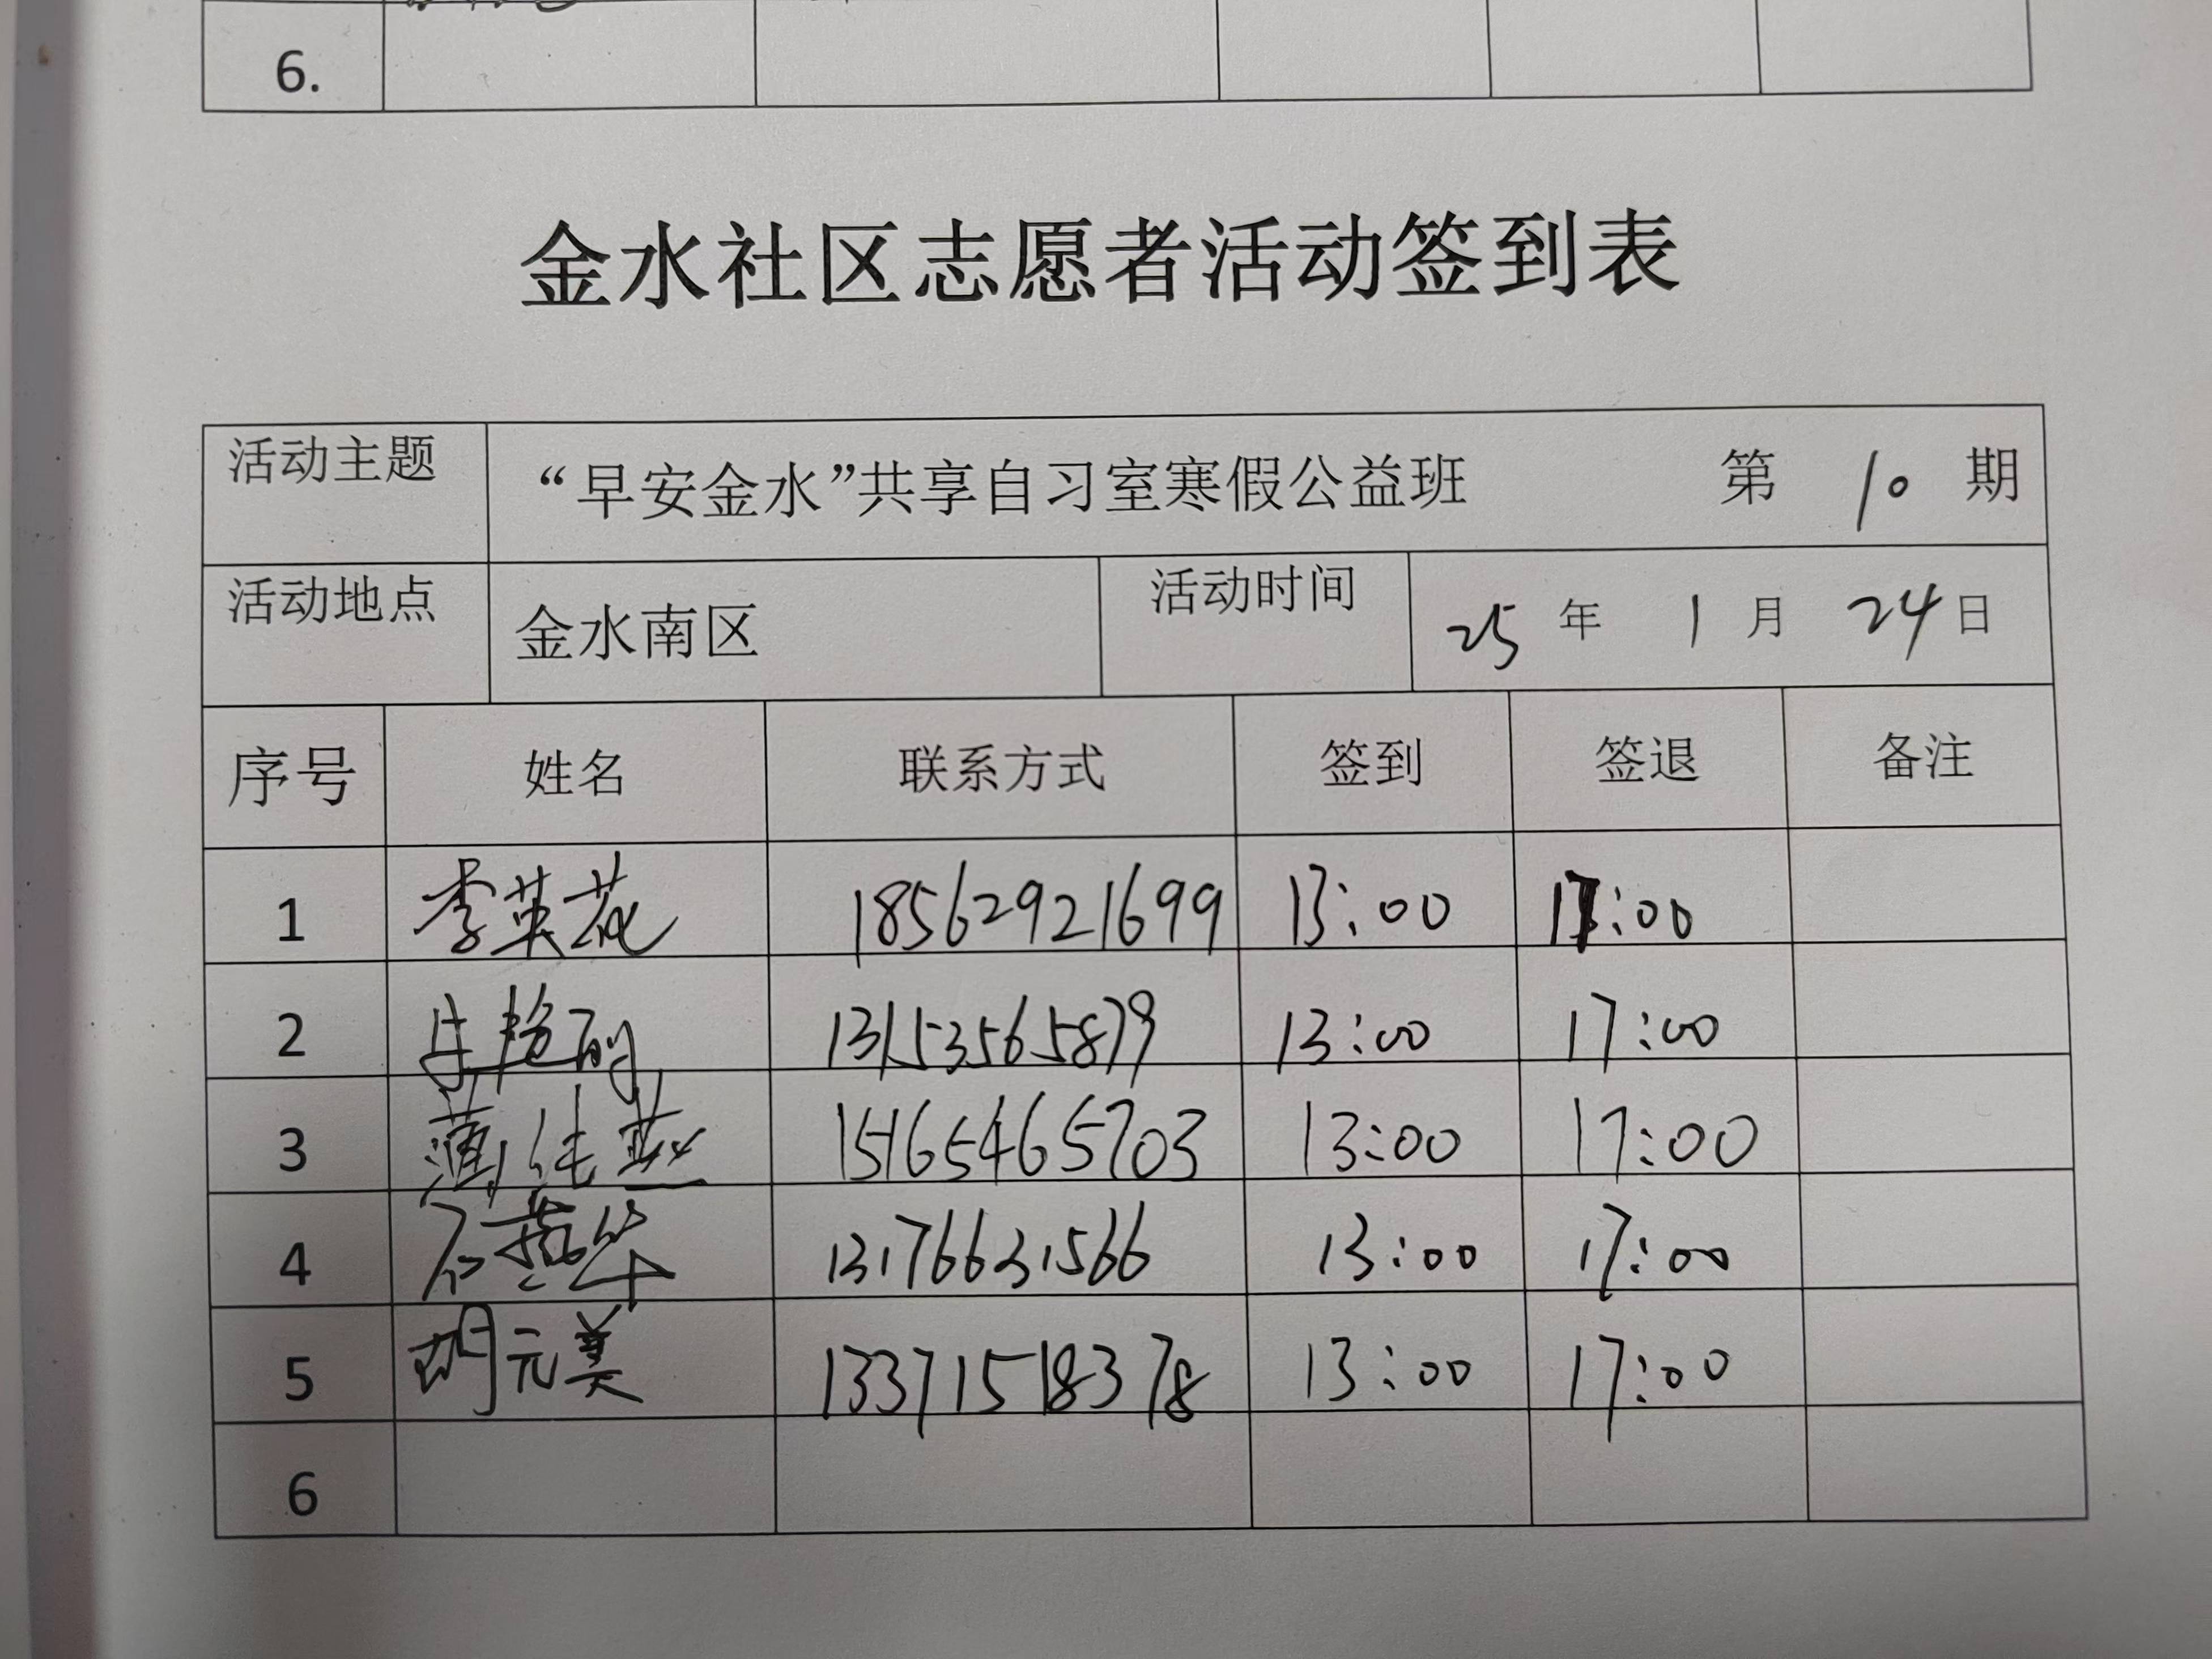 6.
金水社区志愿者活动签到表
活动主题 “早安金水”共享自习室寒假公益班 第 10 期
活动地点 金水南区 活动时间 25 年 1 月 24 日
序号 姓名 联系方式 签到 签退 备注
1 李英花 18562921699 13:00 17:00
2 13153565879 13:00 17:00
3 15165465703 13:00 17:00
4 石燕华 13176631566 13:00 17:00
5 胡元美 13371518378 13:00 17:00
6